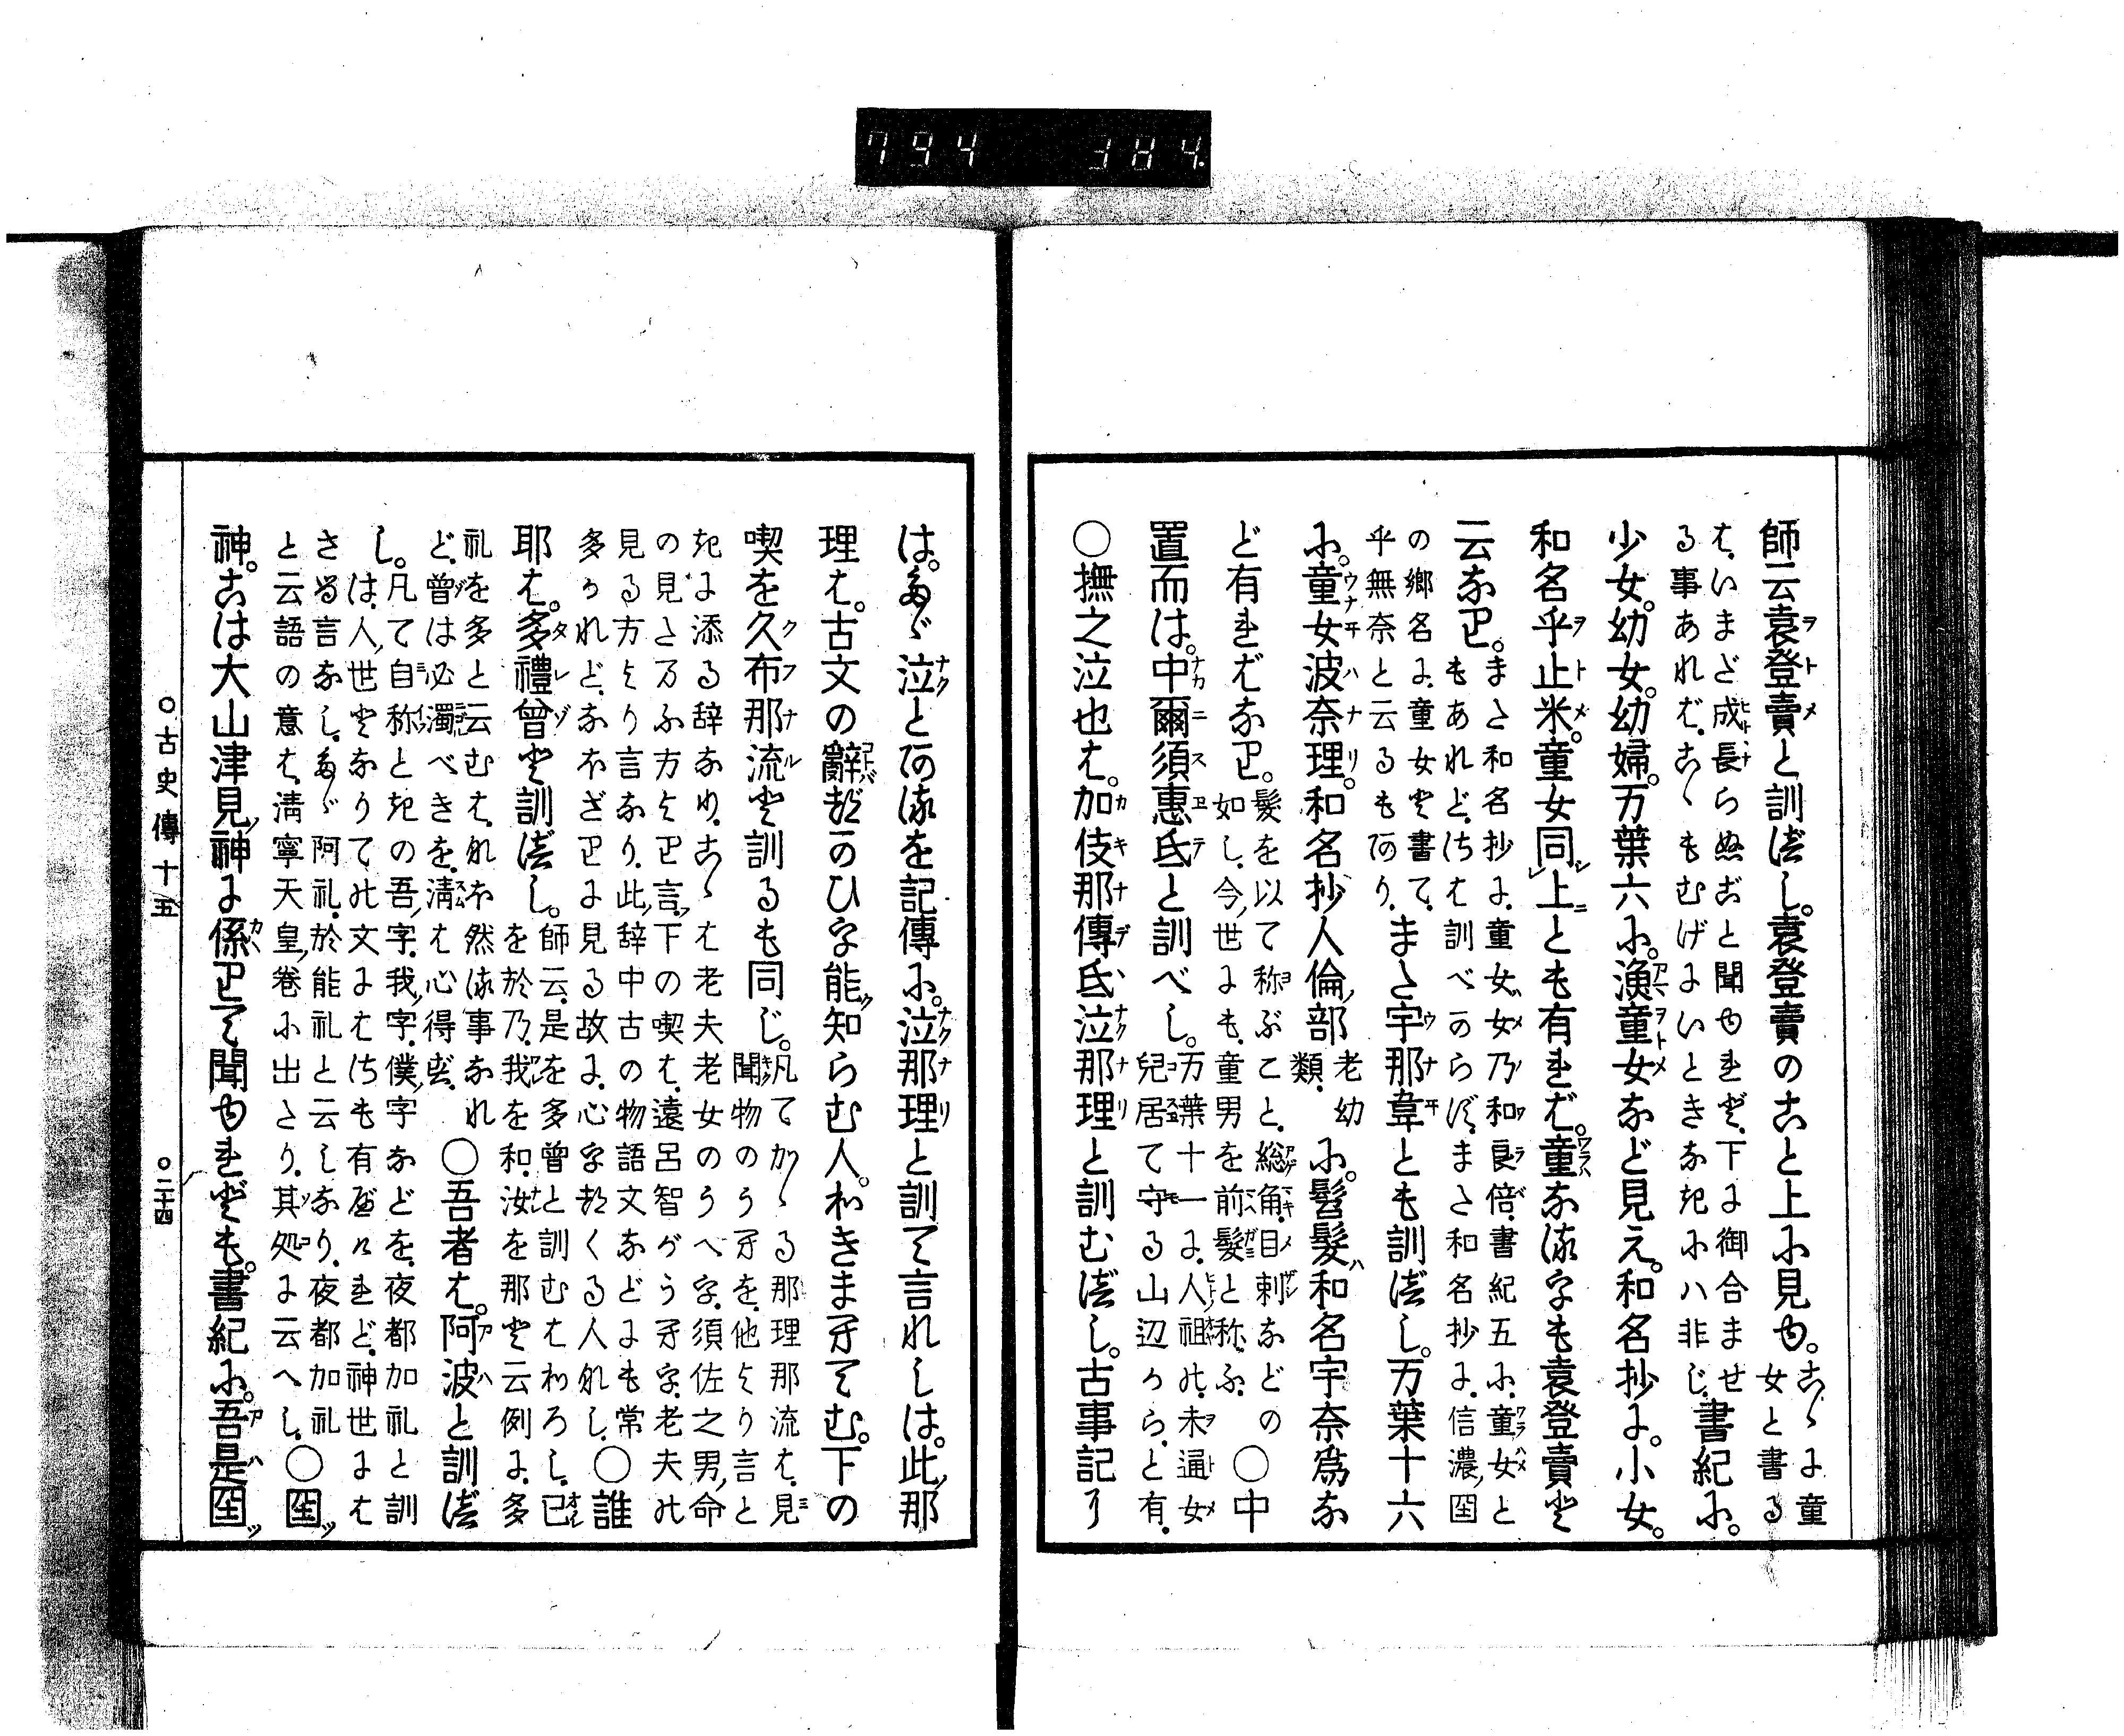 794 384.
師云袁登賣と訓べし。袁登賣のこと上に見ゆ。こゝに童
女と書る
は、いまだ成長らぬほどと聞ゆれど、下に御合ませ
る事あれば、こゝもむげにいときなきにハ非じ、書紀に。
少女。幼女。幼婦。万葉六に。漁童女など見え。和名抄に。小女。
和名乎止米。童女同上とも有れば。童なる字も袁登賣と
云なり。また和名抄に、童女女乃和良倍、書紀五に、童女と
もあれど、こは訓べからず、また和名抄に、信濃國
の郷名に、童女と書て、
乎無奈と云るもあり、また宇那韋とも訓べし。万葉十六
に。童女波奈理。和名抄人倫部老幼
類、に。髫髮和名宇奈爲な
ど有ればなり。髮を以て称ぶこと、総角、目刺などの
如し、今世にも、童男を前髮と称ふ、○中
置而は。中爾須惠氐と訓べし。万葉十一に、人祖の、未通女
兒居て守る山辺から、と有、
○撫之泣也は。加伎那傳氐泣那理と訓むべし。古事記り
は。たゞ泣とあるを記傳に。泣那理と訓て言れしは。此那
理は。古文の辭づかひ字能知らむ人。わきまへてむ。下の
喫を久布那流と訓るも同じ。凡てかゝる那理那流は、見
聞物のうへを、他より言と
きに添る辞なり、こゝは老夫老女のうへ字、須佐之男命
の見たまふ方より言、下の喫は、遠呂智がうへ字、老夫の
見る方より言なり、此辞中古の物語文などにも常
多かれど、なほざりに見る故に、心字づくる人なし、○誰
耶は。多禮曾と訓べし。師云、是を多曾と訓むはわろし、已
を於乃、我を和、汝を那と云例に、多
礼を多と云むは、なほ然る事なれ
ど、曾は必濁べきを、淸は心得ず、○吾者は。阿波と訓べ
し。凡て自称ときの吾字、我字、僕字などを、夜都加礼と訓
は、人世となりての文にはさも有べけれど、神世には
さる言なし、たゞ阿礼、於能礼と云しなり、夜都加礼
と云語の意は、淸寧天皇卷に出たり、其処に云へし、○国
神。こは大山津見神に係りて聞ゆれども。書紀に。吾是国
○古史傳十五 ○二十四